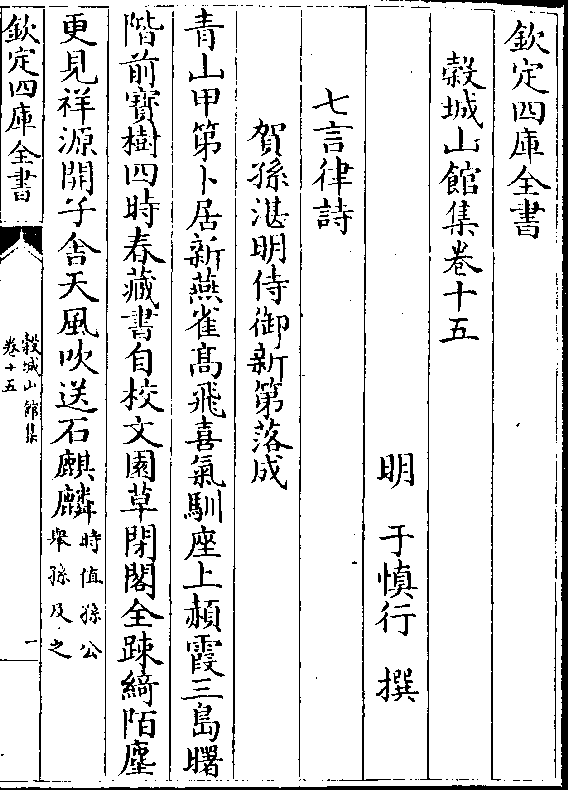 欽定四庫全書
穀城山館集卷十五
明 于慎行 撰
七言律詩
賀孫湛明侍御新第落成
青山甲第卜居新燕雀髙飛喜氣馴座上頳霞三島曙
階前寳樹四時春藏書自校文園草閉閣全踈綺陌塵
更見祥源開子舍天風吹送石麒麟時值孫公舉孫及之
欽定四庫全書
穀城山館集
卷十五
一